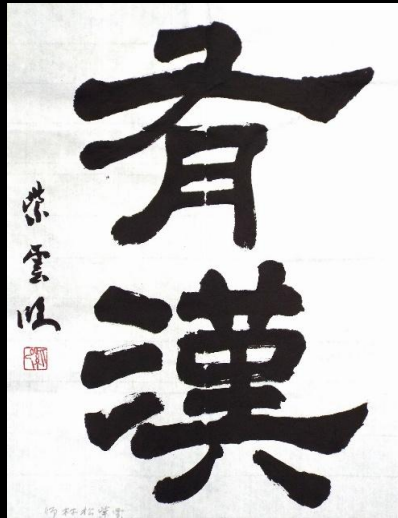 有漢
紫雲臨